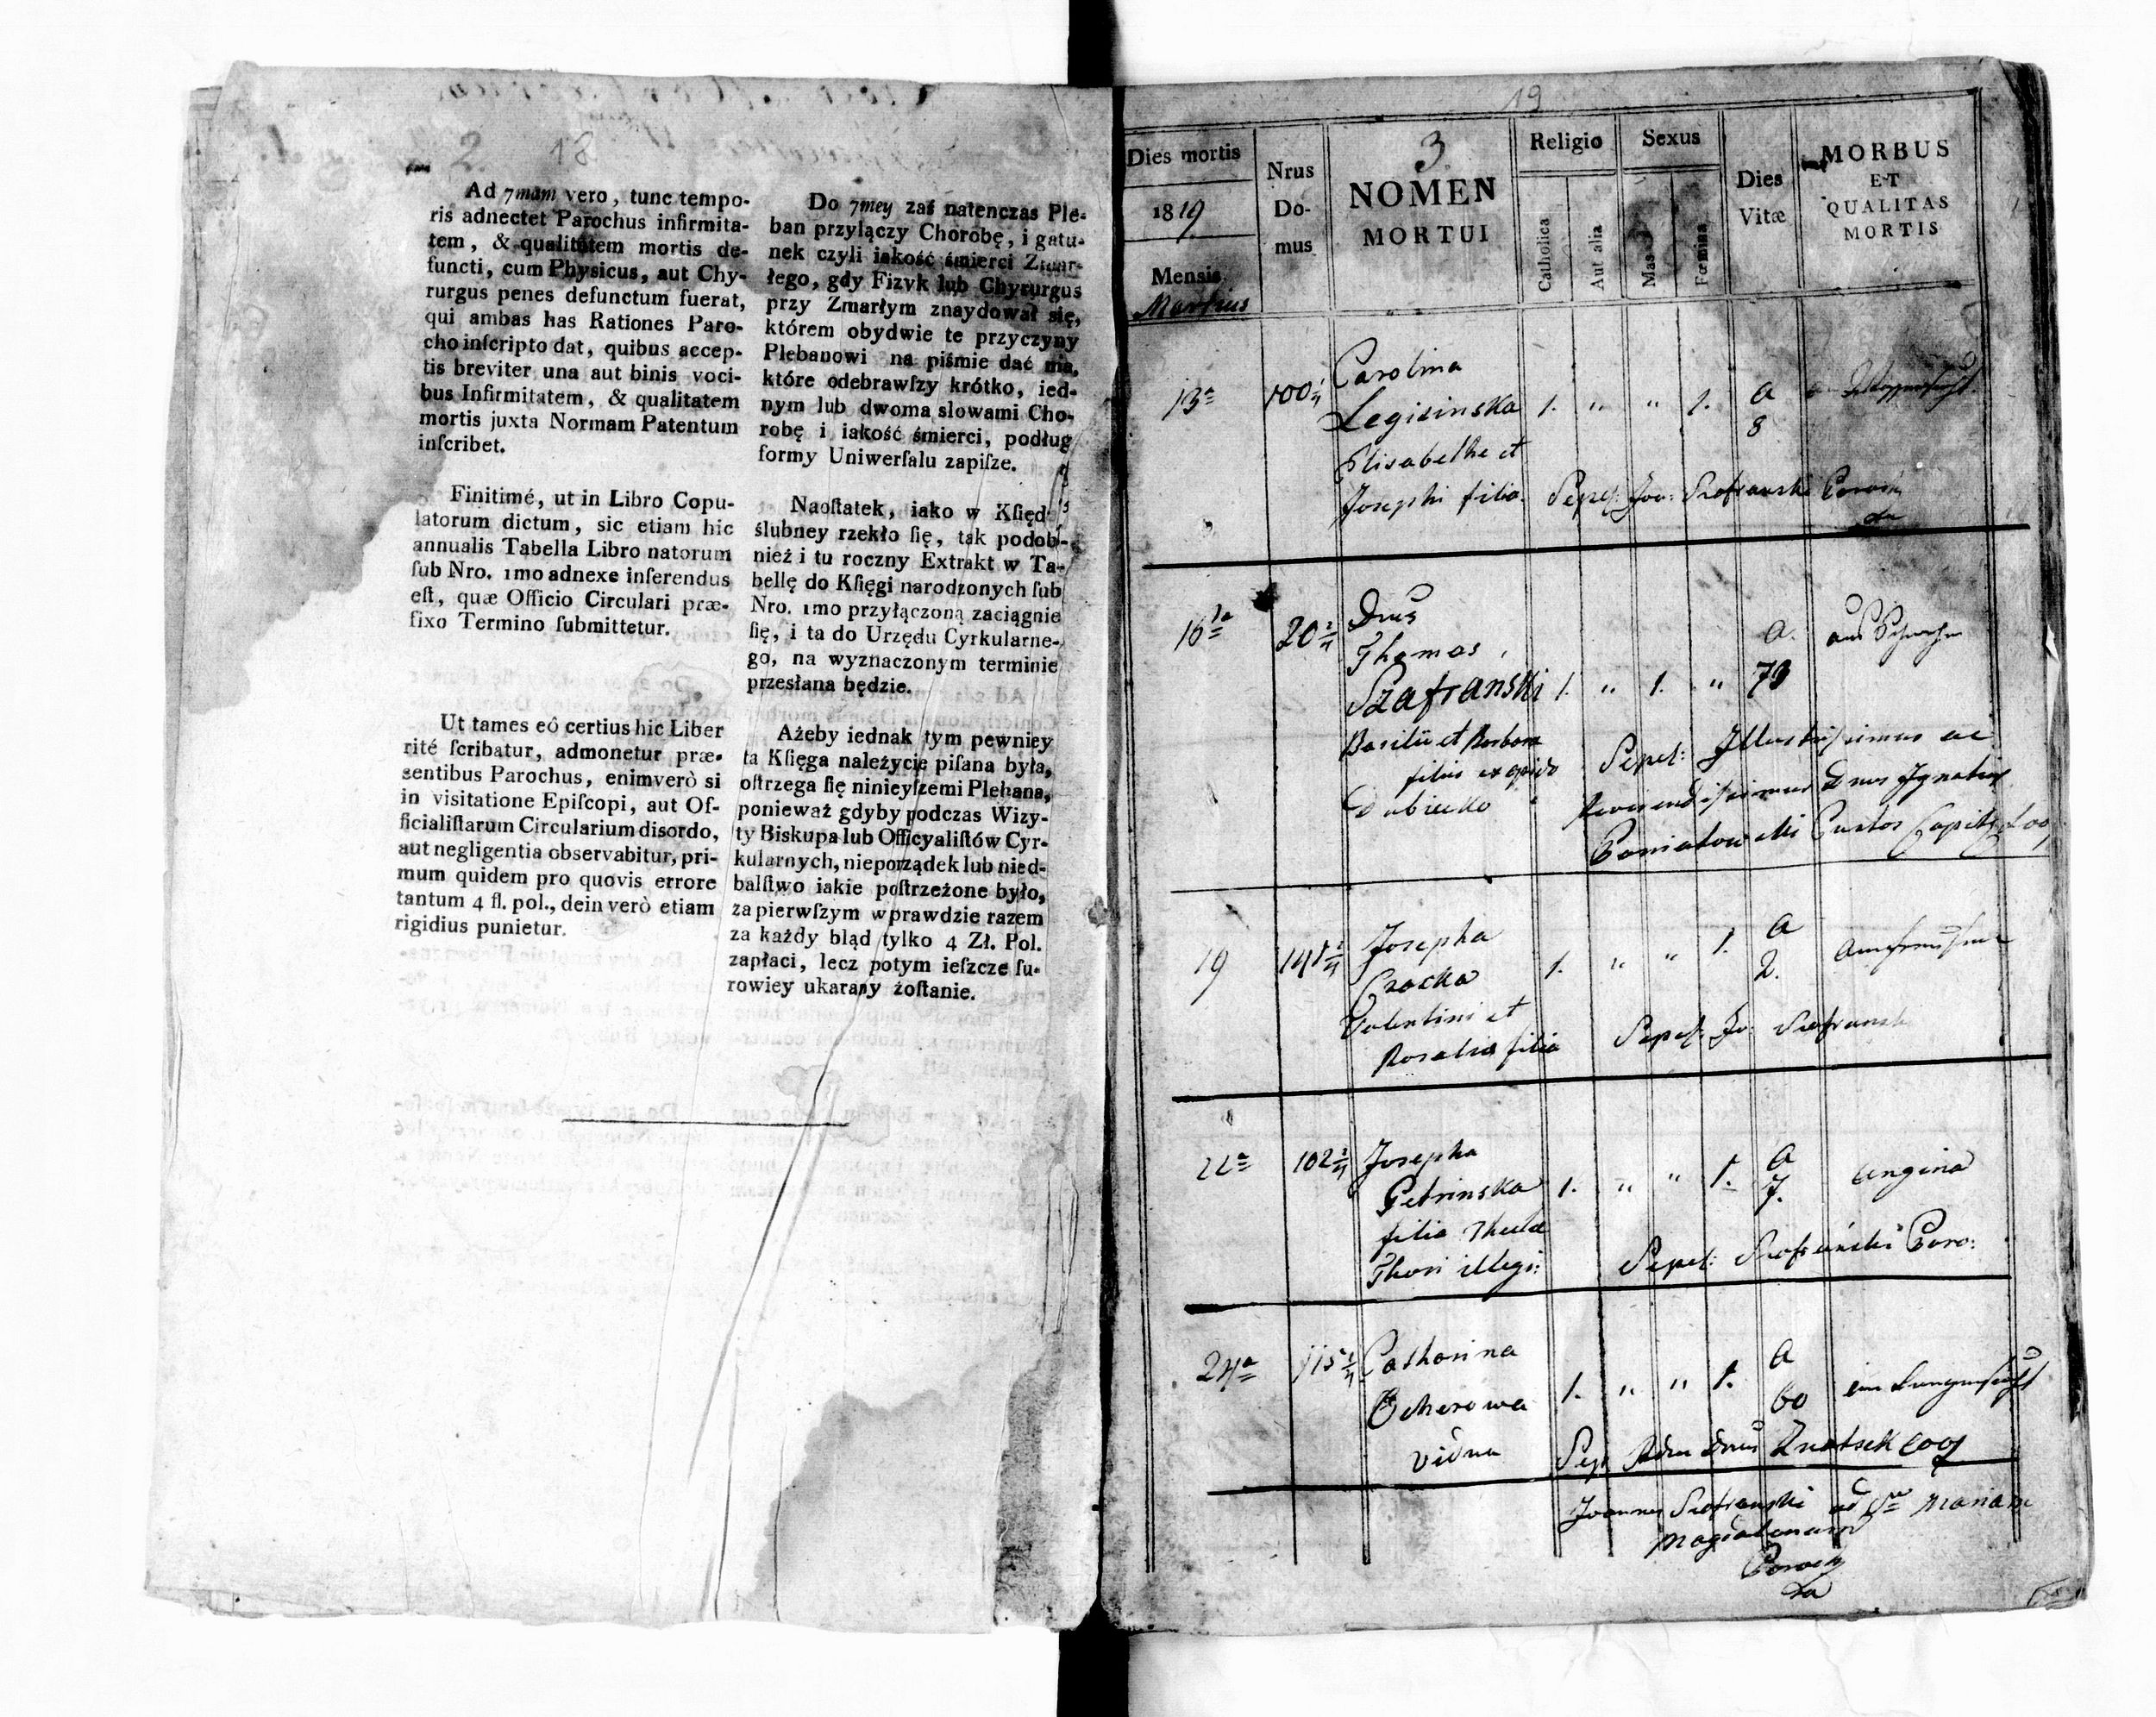 2. 18
Ad 7mam vero, tunc tempo-
ris adnectet Parochus infirmita-
tem, & qualitatem mortis de-
functi, cum Physicus, aut Chy-
rurgus penes defunctum fuerat,
qui ambas has Rationes Paro-
cho inſcripto dat, quibus accep-
tis breviter una aut binis voci-
bus Infirmitatem, & qualitatem
mortis juxta Normam Patentum
inſcribet.
Finitimé, ut in Libro Copu-
latorum dictum, sic etiam hic
annualis Tabella Libro natorum
ſub Nro. 1mo adnexe inferendus
eſt, quæ Officio Circulari præ-
fixo Termino ſubmittetur.
Ut tames eô certius hic Liber
rité ſcribatur, admonetur præ-
sentibus Parochus, enimverò si
in visitatione Epiſcopi, aut Of-
ficialiſtarum Circularium disordo,
aut negligentia observabitur, pri-
mum quidem pro quovis errore
tantum 4 fl. pol., dein verò etiam
rigidius punietur.
Do 7mey zaś natenczas Ple-
ban przyłączy Chorobę, i gatu-
nek czyli iakość śmierci Zmar-
łego, gdy Fizyk lub Chyrurgus
przy Zmarłym znaydował się,
którem obydwie te przyczyny
Plebanowi na piśmie dać ma,
które odebrawſzy krótko, ied-
nym lub dwoma slowami Cho-
robę i iakość śmierci, podług
formy Uniwerſalu zapiſze.
Naoſtatek, iako w Kſięd
ślubney rzekło ſię, tak podob-
nież i tu roczny Extrakt w Ta-
bellę do Kſięgi narodzonych ſub
Nro. 1mo przyłączoną zaciągnie
ſię, i ta do Urzędu Cyrkularne-
go, na wyznaczonym terminie
przesłana będzie.
Ażeby iednak tym pewniey
ta Kſięga należycie piſana była,
oſtrzega ſię ninieyſzemi Plebana,
ponieważ gdyby podczas Wizy-
ty Biskupa lub Officyaliſtów Cyr-
kularnych, nieporządek lub nied-
balſtwo iakie poſtrzeżone było,
za pierwſzym wprawdzie razem
za każdy bląd tylko 4 Zł. Pol.
zapłaci, lecz potym ieſzcze ſu-
rowiey ukarany żoſtanie.
19
3.
Dies mortis
1819
Mensis
Martius
Nrus
Do-
mus
NOMEN
MORTUI
Religio
Catholica
Aut alia
Sexus
Mas
Fœmina
Dies
Vitæ
MORBUS
ET
QUALITAS
MORTIS
13a 100 Carolina
Legisinska 1. " " 1. a 8
Elisabethe et
Josephi filia. Sepel: Joa: Szafranski Paroch
16ta 20 Dnus
Thomas
Szafranski 1. " 1. " a. 73
Basilii et Barbara
filius ex opido
Dubiecko
Sepel: Illustrissimus ac
Reverendissimus Dnus Ignatius
Poniatowski Custos
19 141 Josepha 1. " " 1. a 2.
Czacka
Valentini et
Rosalia filia
Sepel: Jo: Szafranski
22a 102 Josepha
Petrinska 1. " " 1. a 7. angina
filia Thecla
Thori illegi:
Sepel: Szafrański Paro:
24a 115 Catharina
Ocherowa 1. " " 1. a 60
vidua
Sep Adm Dnus Znatsek Coop
Joannes Szafranski ad S Mariam
Magdalenam
Paroch